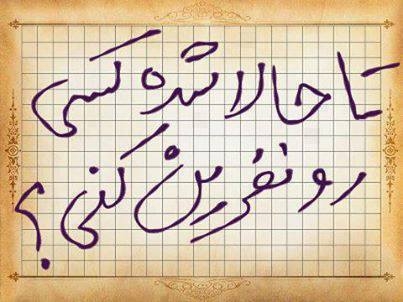 تا حالا شده کسی
رو نفرین کنی؟